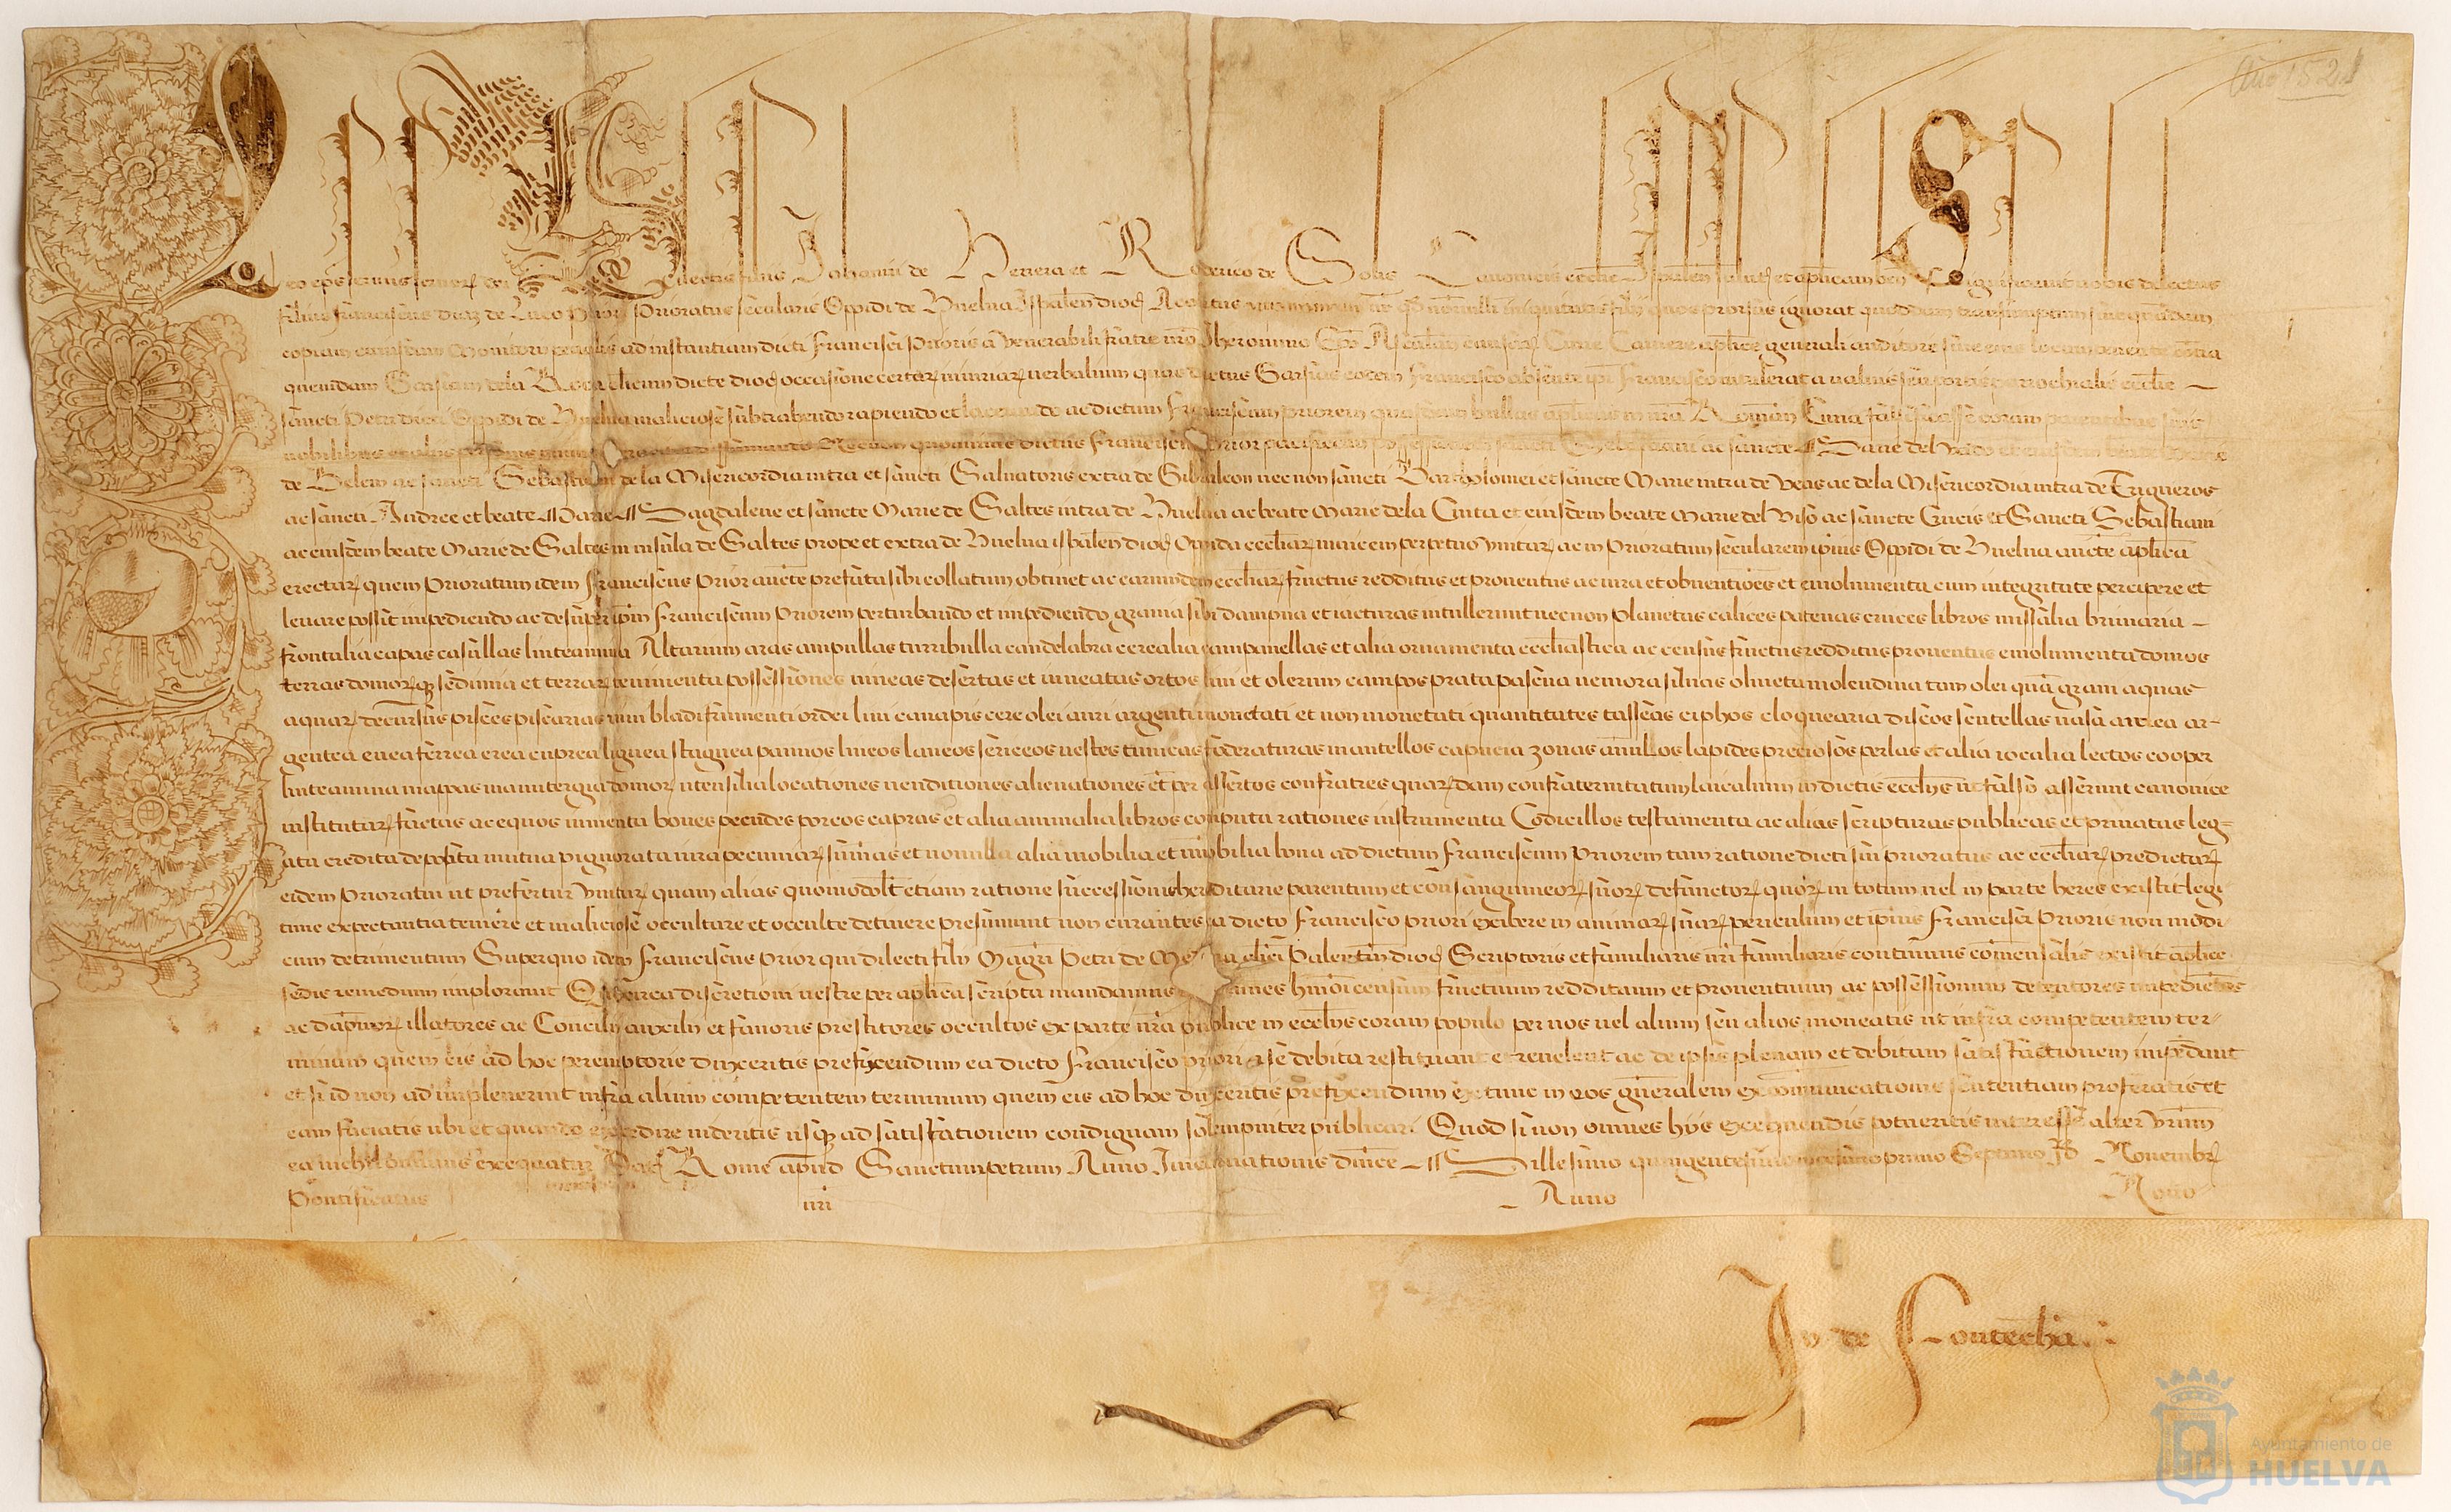 Año 1521
Leo eps servus servoꝝ dei Dilectis filiis Johanni de Herrera et Roderico de Solis Canonicis ecclie Ispalen salutē et aplicam ben Significavit nobis dilectus
filius Franciscus diaz de Luco Prior Prioratus secularis Oppidi de Huelva Ispalen dioc nonnulli iniquitatis filii quos prorsus ignorat quoddam transumptum sive quandam
copiam ad instantiam dicti Francisci Prioris a venerabili fratre nro Iheronimo Epo Asculan curie Camere aplice generali auditore sive eius locumtenente contra
quendam Garsiam dela clericum dicte dioc occasione certaꝝ iniuriaꝝ verbalium quas dictus Garsias eidem Francisco absente ipi Francisco intulerat a valvis seu portis parrochialis ecclie
sancti Petri dicti Oppidi de Huelva maliciose subtrahendo rapiendo et lacerando ac dictum Franciscum priorem quasdam bullas aplicas in nra Roman Curia falsificasse coram
nobilibus dictus Franciscus Prior ac sancte Marie del
de Belem ac sancti Sebastiani dela Misericordia intra et sancti Salvatoris extra de Gibraleon necnon sancti Bartholomei et sancte Marie intra de Veas ac dela Misericordia intra de Trigueros
ac sancti Andree et beate Marie Magdalene et sancte Marie de Saltes intra de Huelva ac beate Marie dela Cinta et eiusdem beate Marie del Viso ac sancte Crucis et Sancti Sebastiani
ac eiusdem beate Marie de Saltes in insula de Saltes prope et extra de Huelva ispalen dioc Oppida eccliaꝝ invicem perpetuo unitaꝝ ac in Prioratum secularem ipius Oppidi de Huelva aucte aplica
erectaꝝ quem Prioratum idem Franciscus Prior aucte prefata sibi collatum obtinet ac earundem eccliaꝝ fructus redditus et proventus ac iura et obventiones et emolumenta cum integritate percipere et
levare possit impediendo ac desuper ipm Franciscum Priorem perturbando et impediendo gravia sibi dampna et iacturas intullerunt necnon Planetas calices patenas cruces libros missalia briviaria
frontalia capas casullas linteamina Altarium aras ampullas turribulla candelabra cerealia campanellas et alia ornamenta eccliastica ac census fructus redditus proventus emolumenta domos
terras domoꝝq sedimia et terraꝝ tenimenta possessiones vineas desertas et vineatas ortos lini et olerum campos prata pascua nemora silvas oliveta molendina tam olei quā grani aquas
aquaꝝ decursus pisces piscarias vini bladi frumenti ordei lini canapis cere olei auri argenti monetati et non monetati quantitates tasseas ciphos cloquearia discos scutellas vasa aurea ar-
gentea enea ferrea erea cuprea lignea stagnea pannos lineos laneos sericeos vestes tunicas foderaturas mantellos capucia zonas anullos lapides preciosos perlas et alia iocalia lectos cooper
linteamina mappas manutergia domoꝝ utensilia locationes venditiones alienationes et per assertos confratres quaꝝdam confraternitatum laicalium in dictis ecclijs ut falso asserunt canonice
institutaꝝ factas ac equos iumenta boves pecudes porcos capras et alia animalia libros computa rationes instrumenta Codicillos testamenta ac alias scripturas publicas et privatas leg-
ata credita deposita mutua pignorata iura pecuniaꝝ sumas et nonnulla alia mobilia et imobilia bona ad dictum Franciscum Priorem tam ratione dicti sui prioratus ac eccliaꝝ predictaꝝ
eidem Prioratui ut prefertur unitaꝝ quam alias quomodolt etiam ratione successionis hereditarie parentum et consanguineoꝝ suoꝝ defunctoꝝ quoꝝ in totum vel in parte heres existit legi
time expectantia temere et maliciose occultare et occulte detinere presumunt non curantes ea dicto Francisco priori exibere in animaꝝ suaꝝ periculum et ipius Francisci Prioris non modi
cum detrimentum Super quo idem Franciscus Prior qui dilecti filij Magri Petri de clici Palentin dioc Scriptoris et familiaris nri familiaris continuus comensalis existit aplice
sedis remedium imploravit Quocirca discretioni vestre per aplica scripta mandamus omnes hmoi censuum fructuum reddituum et proventuum ac possessionum detentores impedientes
ac dapnoꝝ illatores ac Concilij auxilij et favoris prestitores occultos ex parte nra publice in ecclijs coram populo per vos vel alium seu alios moneatis ut infra competentem ter-
minum quem eis ad hoc peremptorie duxeritis prefigendum ea dicto Francisco priori a se debita restituant et revelent ac de ipsis plenam et debitam satisfactionem impēdant
et si id non adimpleverint infra alium competentem terminum quem eis ad hoc duxeritis prefigendum extunc in eos gneralem excommunicationis sententiam proferatis et
eam faciatis ubi et quando expedire videritis usq ad satisfactionem condignam solempniter publicari Quod si non omnes hijs exequendis potueritis interesse alter vrum
ea nichilominus exequatur Dat Rome apud Sanctumpetrum Anno Incarnationis dnice Millesimo quingentesimo vicesimo primo Septimo Id Novembꝝ
Pontificatus nri Anno Nono
Jo de Fontecha
Ayuntamiento de
HUELVA